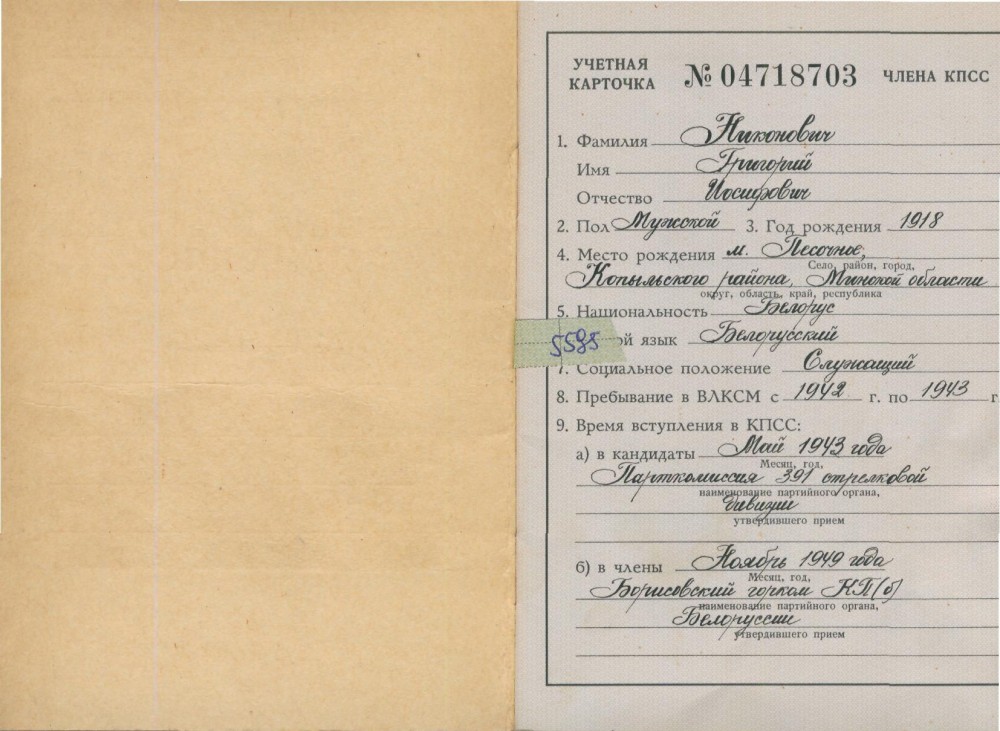 УЧЕТНАЯ
КАРТОЧКА № 04718703 ЧЛЕНА КПСС
1. Фамилия Никонович
Имя Григорий
Отчество Иосифович
2. Пол Мужской 3. Год рождения 1918
4. Место рождения м. Песочное,
Село, район, город,
Копыльского района, Минской области
округ, область, край, республика
5. Национальность Белорус
5595 ой язык Белорусский
7. Социальное положение Служащий
8. Пребывание в ВЛКСМ с 1942 г. по 1943 г
9. Время вступления в КПСС:
а) в кандидаты Май 1943 года
Месяц, год,
Парткомиссия 391 стрелковой
наименование партийного органа,
дивизии
утвердившего прием
б) в члены Ноябрь 1949 года
Месяц, год,
Борисовский горком КП(б)
наименование партийного органа,
Белоруссии
утвердившего прием